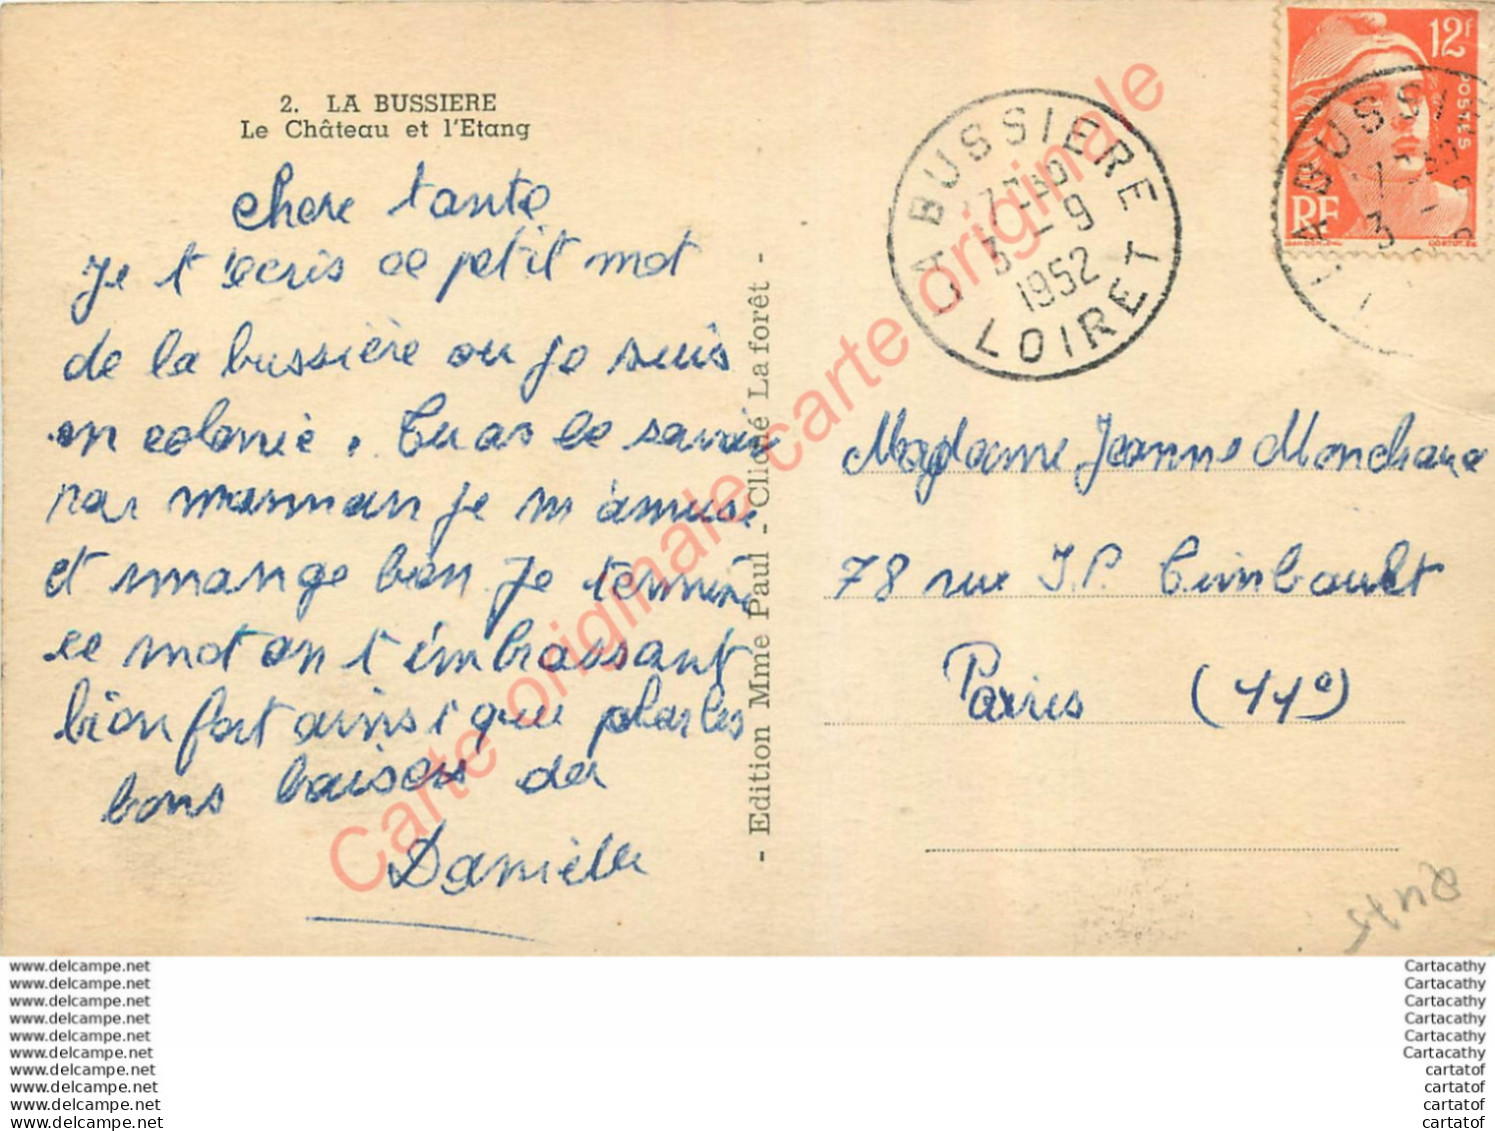 2. LA BUSSIERE
Le Château et l'Etang
chere tante
Je t'ecris ce petit mot
de la bussière ou je suis
en colonie. Tu as le savoir
par maman je m'amuse
et mange bien je termine
ce mot en t'embrassant
bien fort ainsi que
bons baisers de
Danièlle
- Edition Mme Paul - Cliché La forêt -
LA BUSSIERE
3 - 9
1952
LOIRET
12f
POSTES
RF
LA BUSSIE
3 -
Madame Jeanne
78 rue J.P. Timbault
Paris (11e)
Carte originale carte originale carte originale
www.delcampe.net
www.delcampe.net
www.delcampe.net
www.delcampe.net
www.delcampe.net
www.delcampe.net
www.delcampe.net
www.delcampe.net
www.delcampe.net
www.delcampe.net
Cartacathy
Cartacathy
Cartacathy
Cartacathy
Cartacathy
Cartacathy
cartatof
cartatof
cartatof
cartatof